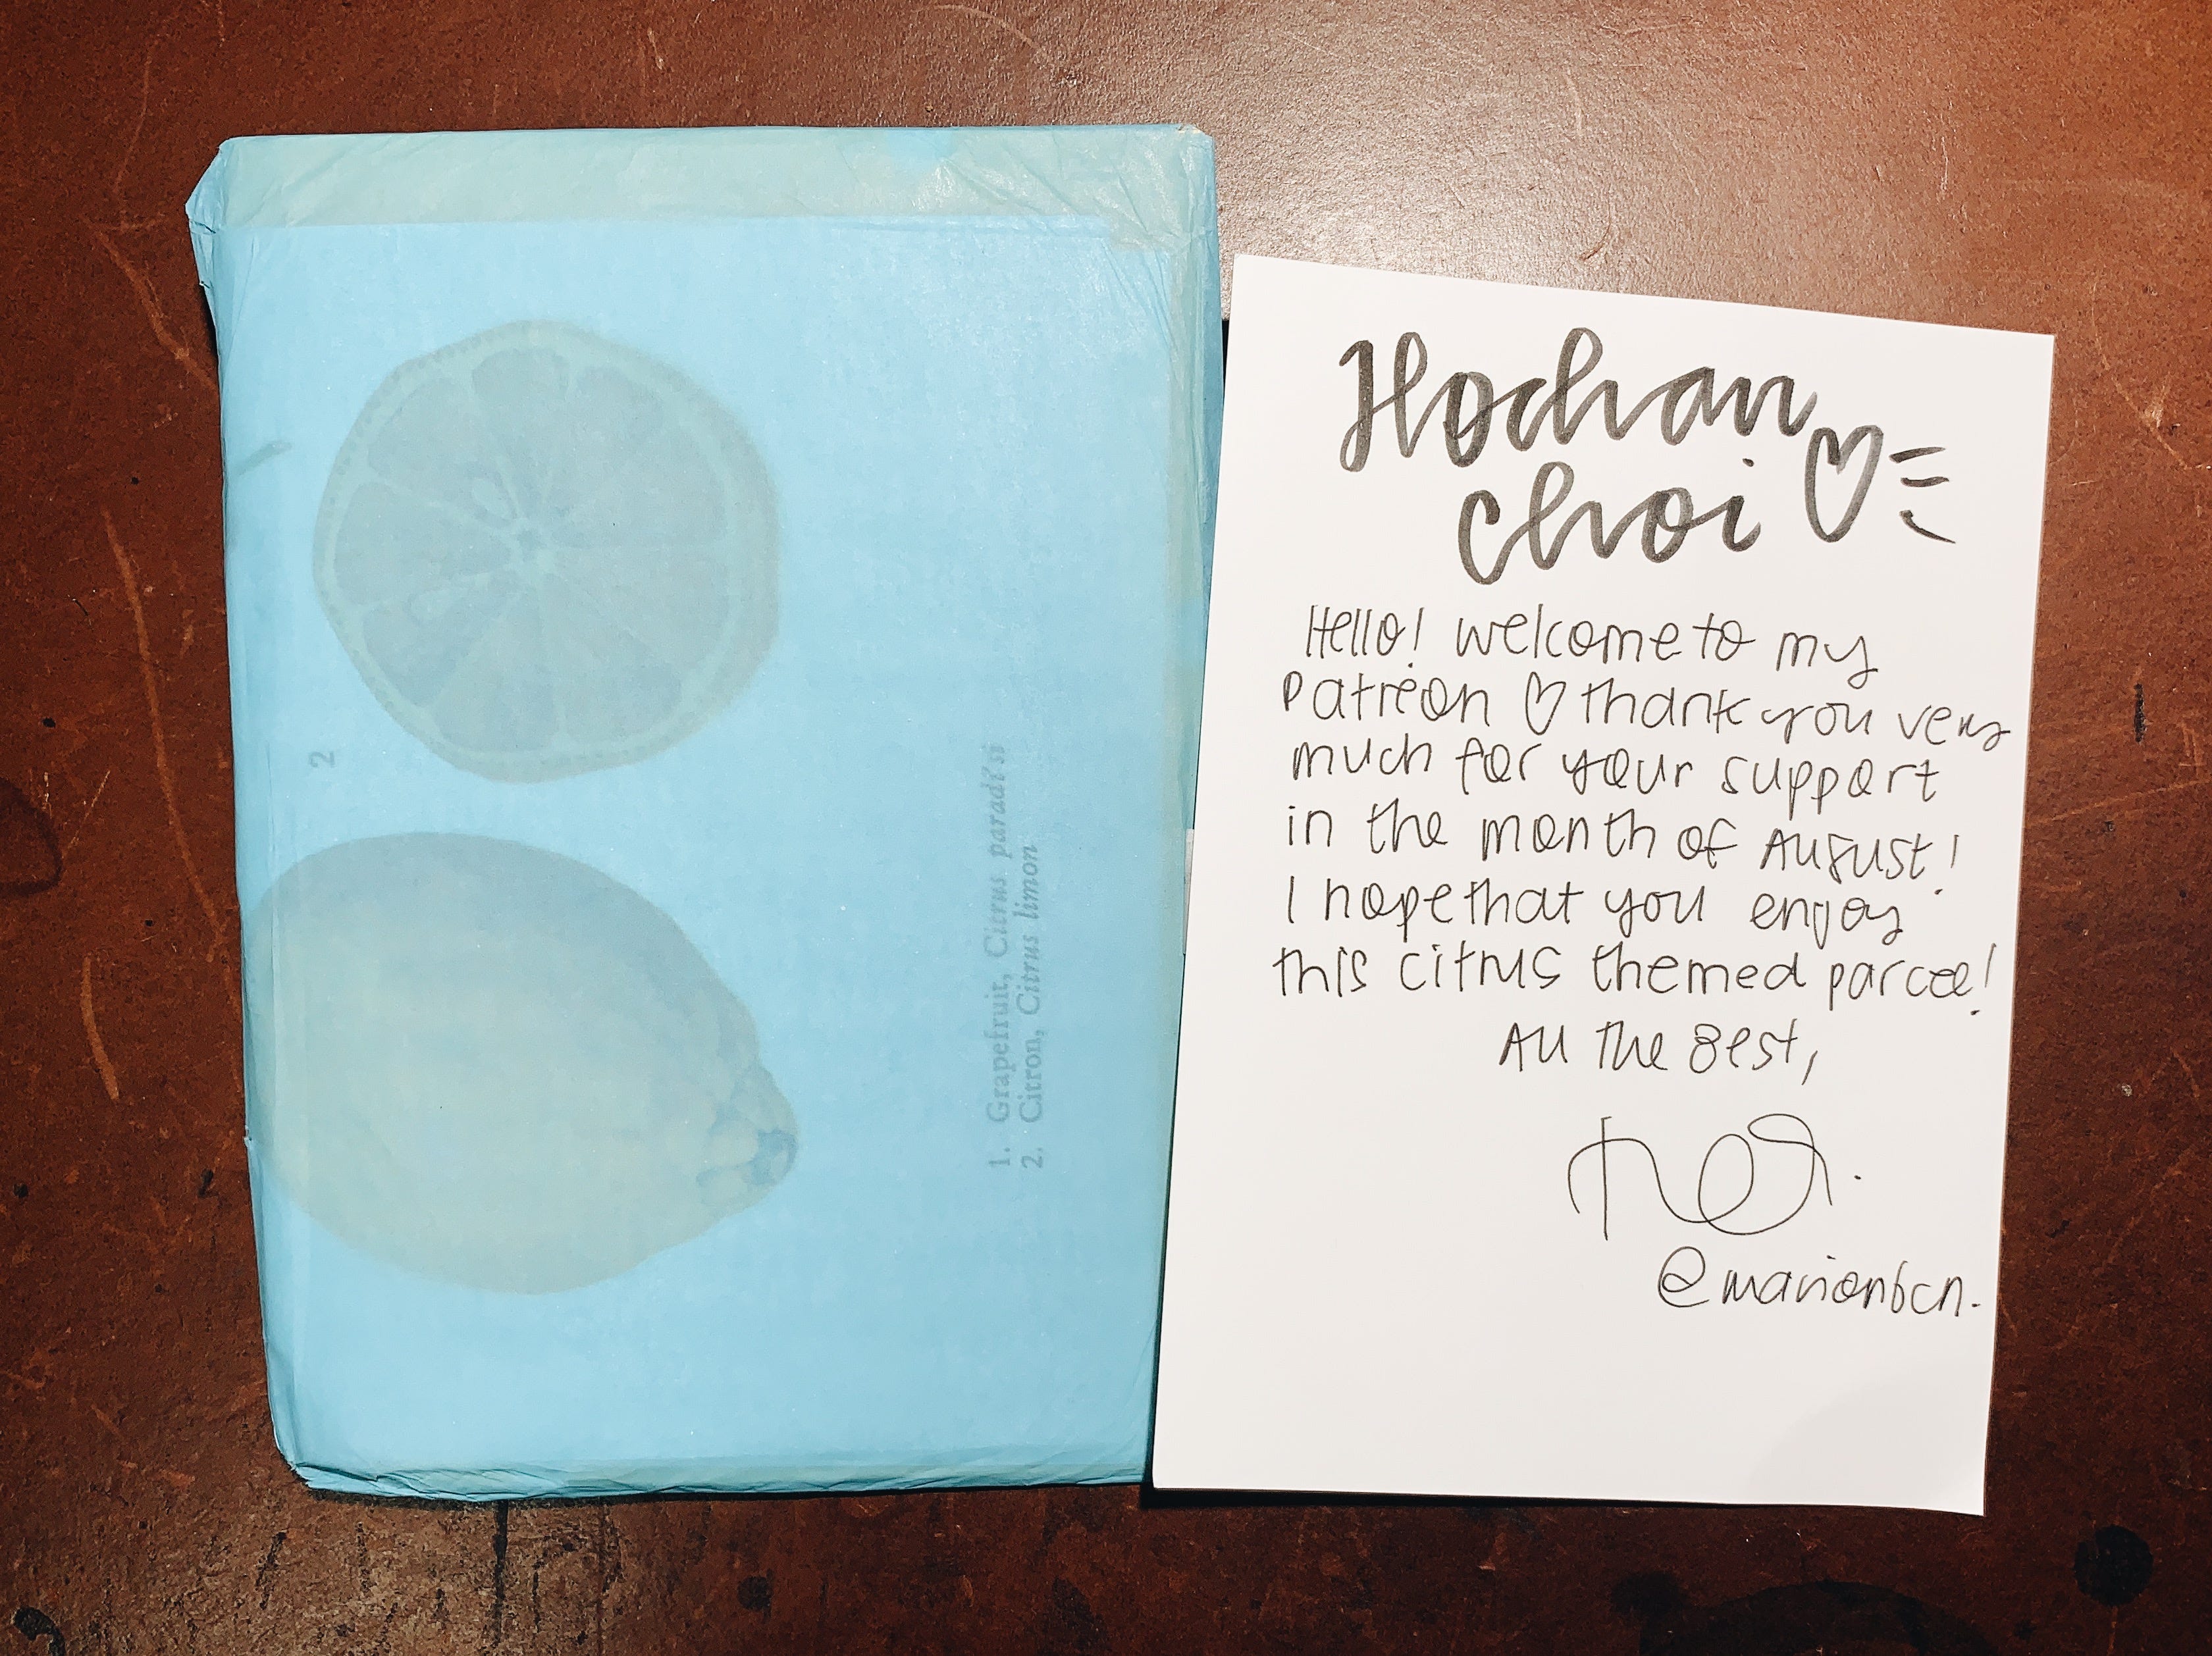 2
1. Grapefruit, Citrus paradisi
2. Citron, Citrus limon
Hochan
Choi
Hello! Welcome to my
Patreon ♡ thank you very
much for your support
in the month of August!
I hope that you enjoy
this citrus themed parcel!
All the Best,
@marionbcn.